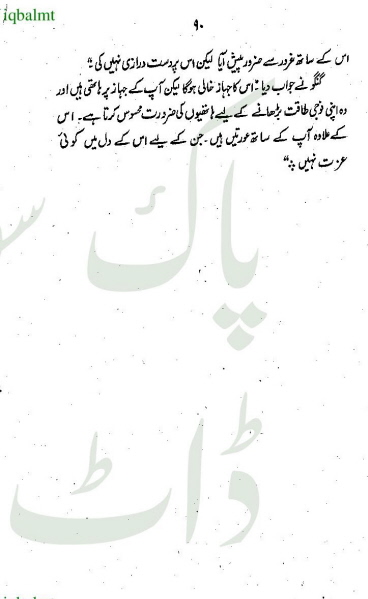 iqbalmt
۹۰
اس کے ساتھ غرور سے ضرور پیش آیا لیکن اس پر دست درازی نہیں کی ۔"
گنگو نے جواب دیا "اس کا جہاز خالی ہوگا لیکن آپ کے جہاز پر ہاتھی ہیں اور
وہ اپنی فوجی طاقت بڑھانے کے لیے ہاتھیوں کی ضرورت محسوس کرتا ہے۔ اس
کے علاوہ آپ کے ساتھ عورتیں ہیں۔ جن کے لیے اس کے دل میں کوئی
عزت نہیں ؛"
پاک
ڈاٹ